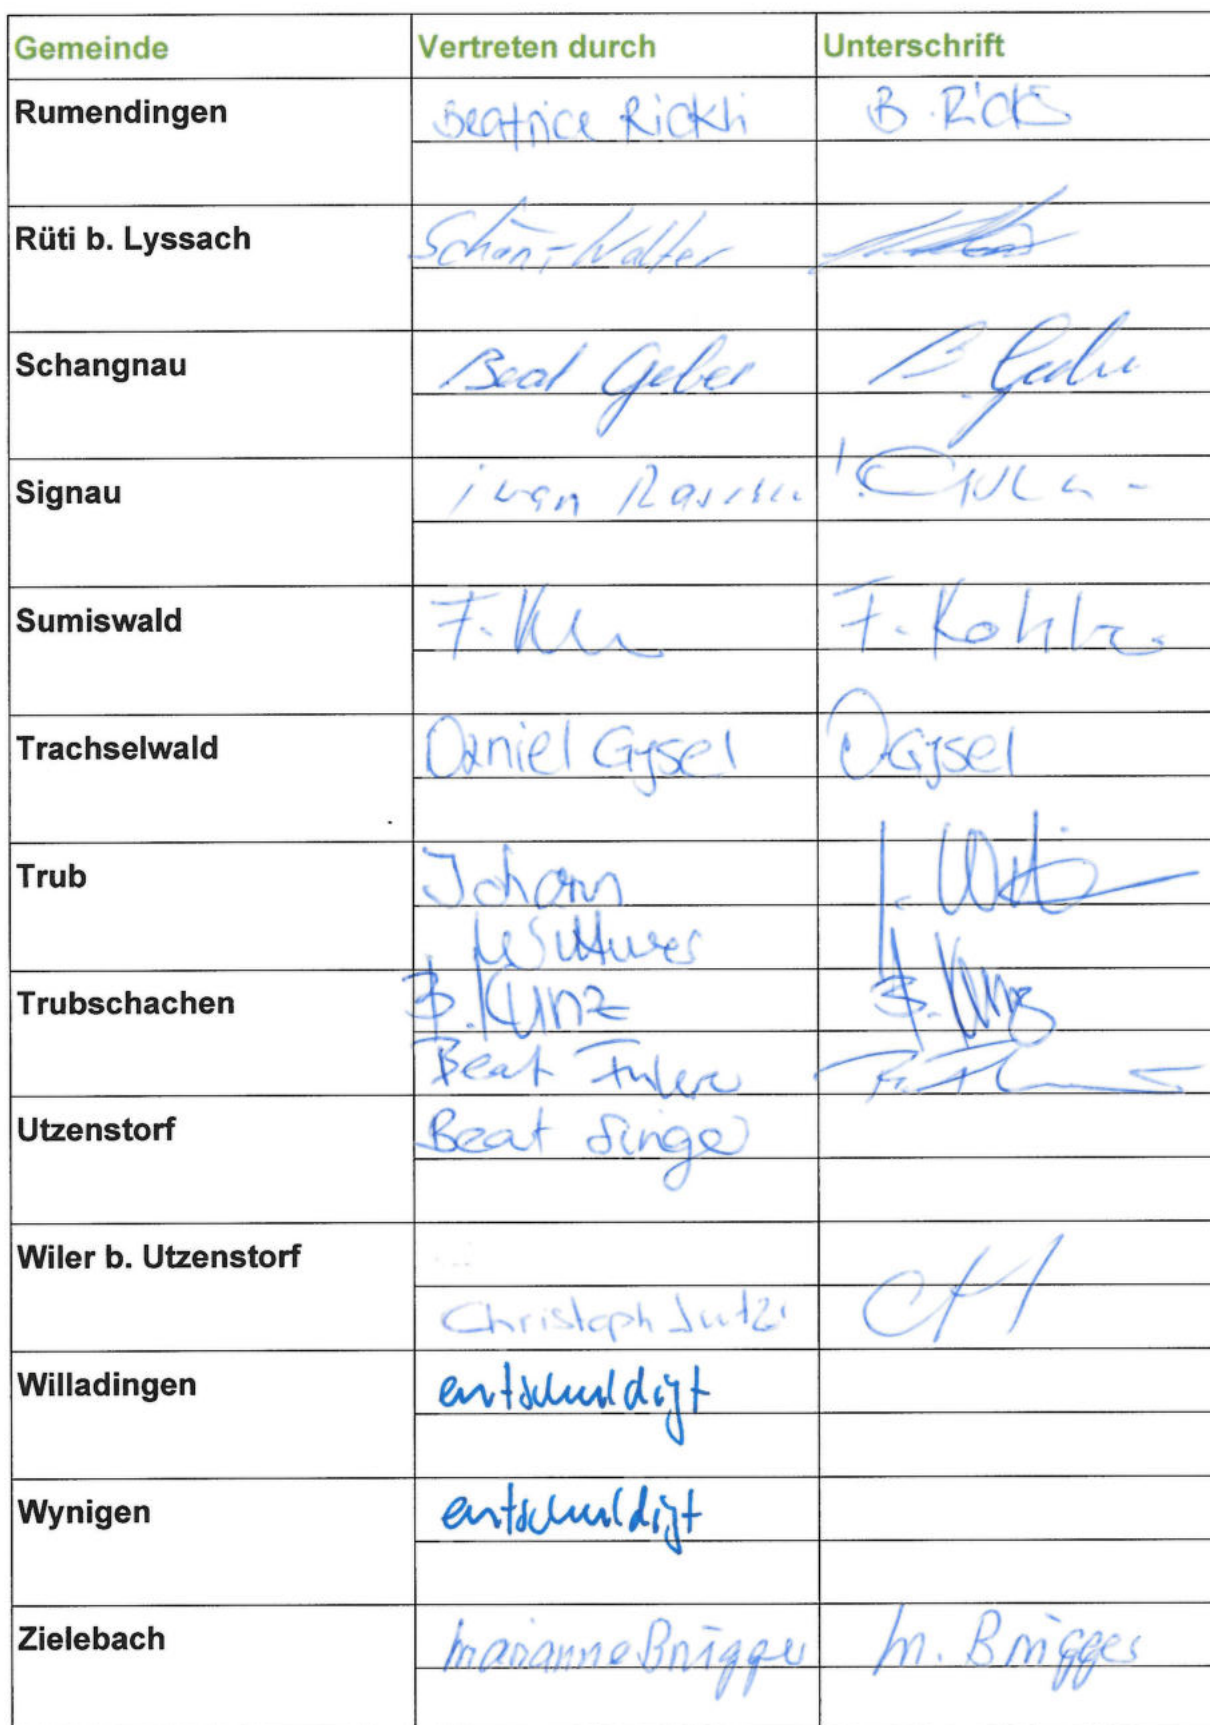 Gemeinde Vertreten durch Unterschrift
Rumendingen Beatrice Rickli B. Rickli
Rüti b. Lyssach Schär Walter
Schangnau Beat Gerber B. Gerber
Signau
Sumiswald F. Kohler
Trachselwald Daniel Gysel D. Gysel
Trub Johann
Wittwer
Trubschachen B. Kunz B. Kunz
Beat
Utzenstorf Beat Singer
Wiler b. Utzenstorf
Christoph Jutzi
Willadingen entschuldigt
Wynigen entschuldigt
Zielebach Marianne Brügger M. Brügger